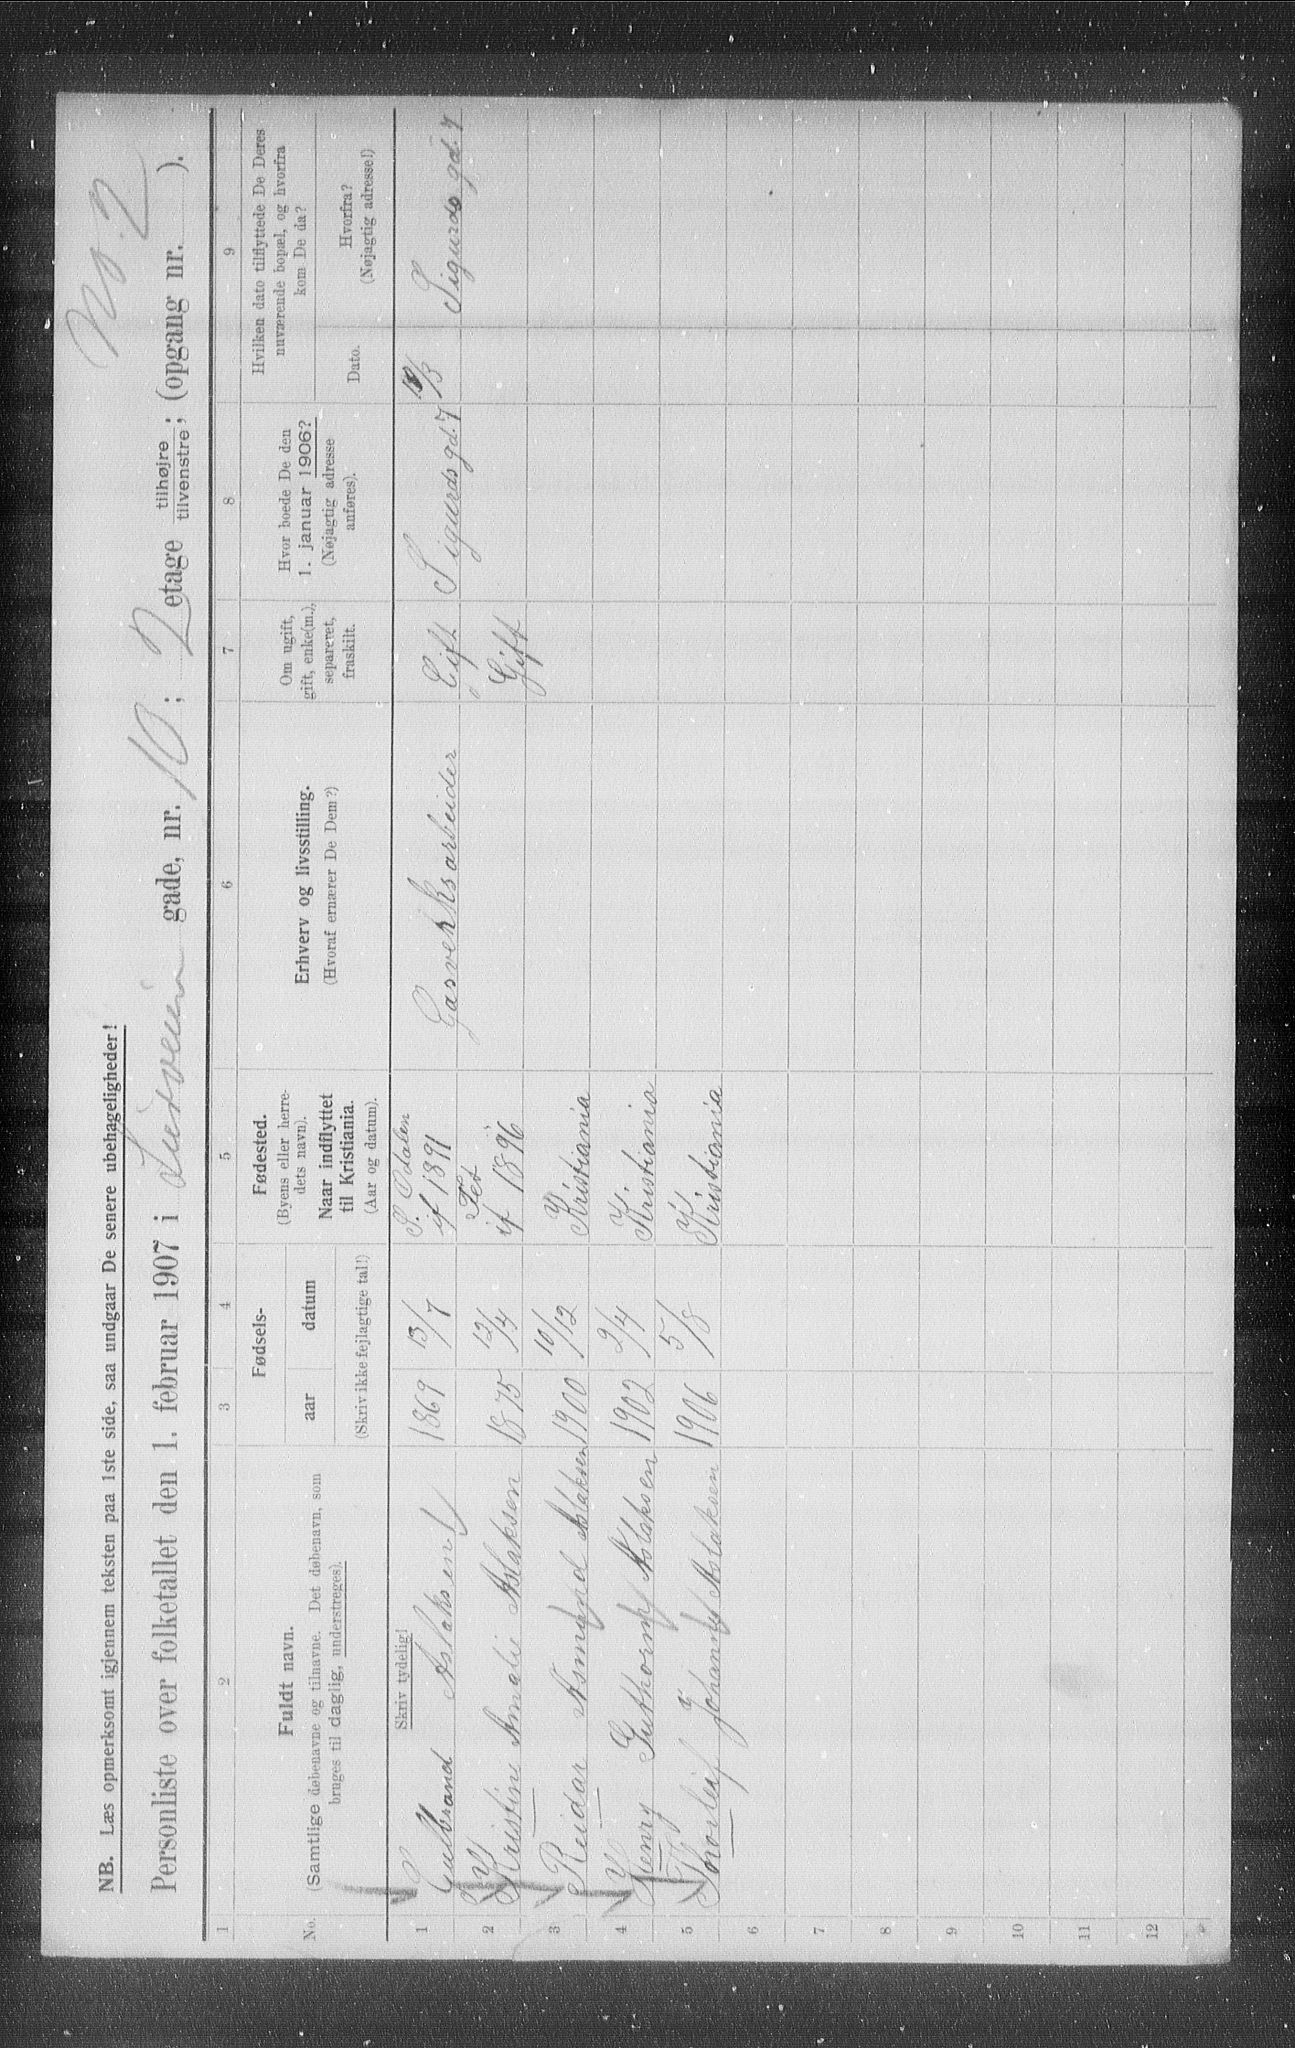 No. 2
NB. Læs opmerksomt igjennem teksten paa 1ste side, saa undgaar De senere ubehageligheder!
Personliste over folketallet den 1. februar 1907 i gade, nr. 10; 2 etage tilhøjre tilvenstre; (opgang nr. ).
1 2 3 4 5 6 7 8 9
No.
Fuldt navn.
(Samtlige døbenavne og tilnavne. Det døbenavn, som
bruges til daglig, understreges).
Fødsels-
aar datum
(Skriv ikke fejlagtige tal!)
Fødested.
(Byens eller herre-
dets navn).
Naar indflyttet
til Kristiania.
(Aar og datum).
Erhverv og livsstilling.
(Hvoraf ernærer De Dem?)
Om ugift,
gift, enke(m.),
separeret,
fraskilt.
Hvor boede De den
1. januar 1906?
(Nøjagtig adresse
anføres).
Hvilken dato tilflyttede De Deres
nuværende bopæl, og hvorfra
kom De da?
Dato.
Hvorfra?
(Nøjagtig adresse!)
Skriv tydelig!
1 Gulbrand Aslaksen 1869 13/7 S. Odalen if 1891 Gasverksarbeider Gift Sigurds gd. 7 /3 Sigurds gd. 7
2 Kristine Amalie Aslaksen 1875 12/4 Fet if 1896 Gift
3 Reidar Asmund Aslaksen 1900 10/12 Kristiania
4 Henry Guthorm Aslaksen 1902 9/4 Kristiania
5 Thorleif Johannes Aslaksen 1906 5/8 Kristiania
6
7
8
9
10
11
12